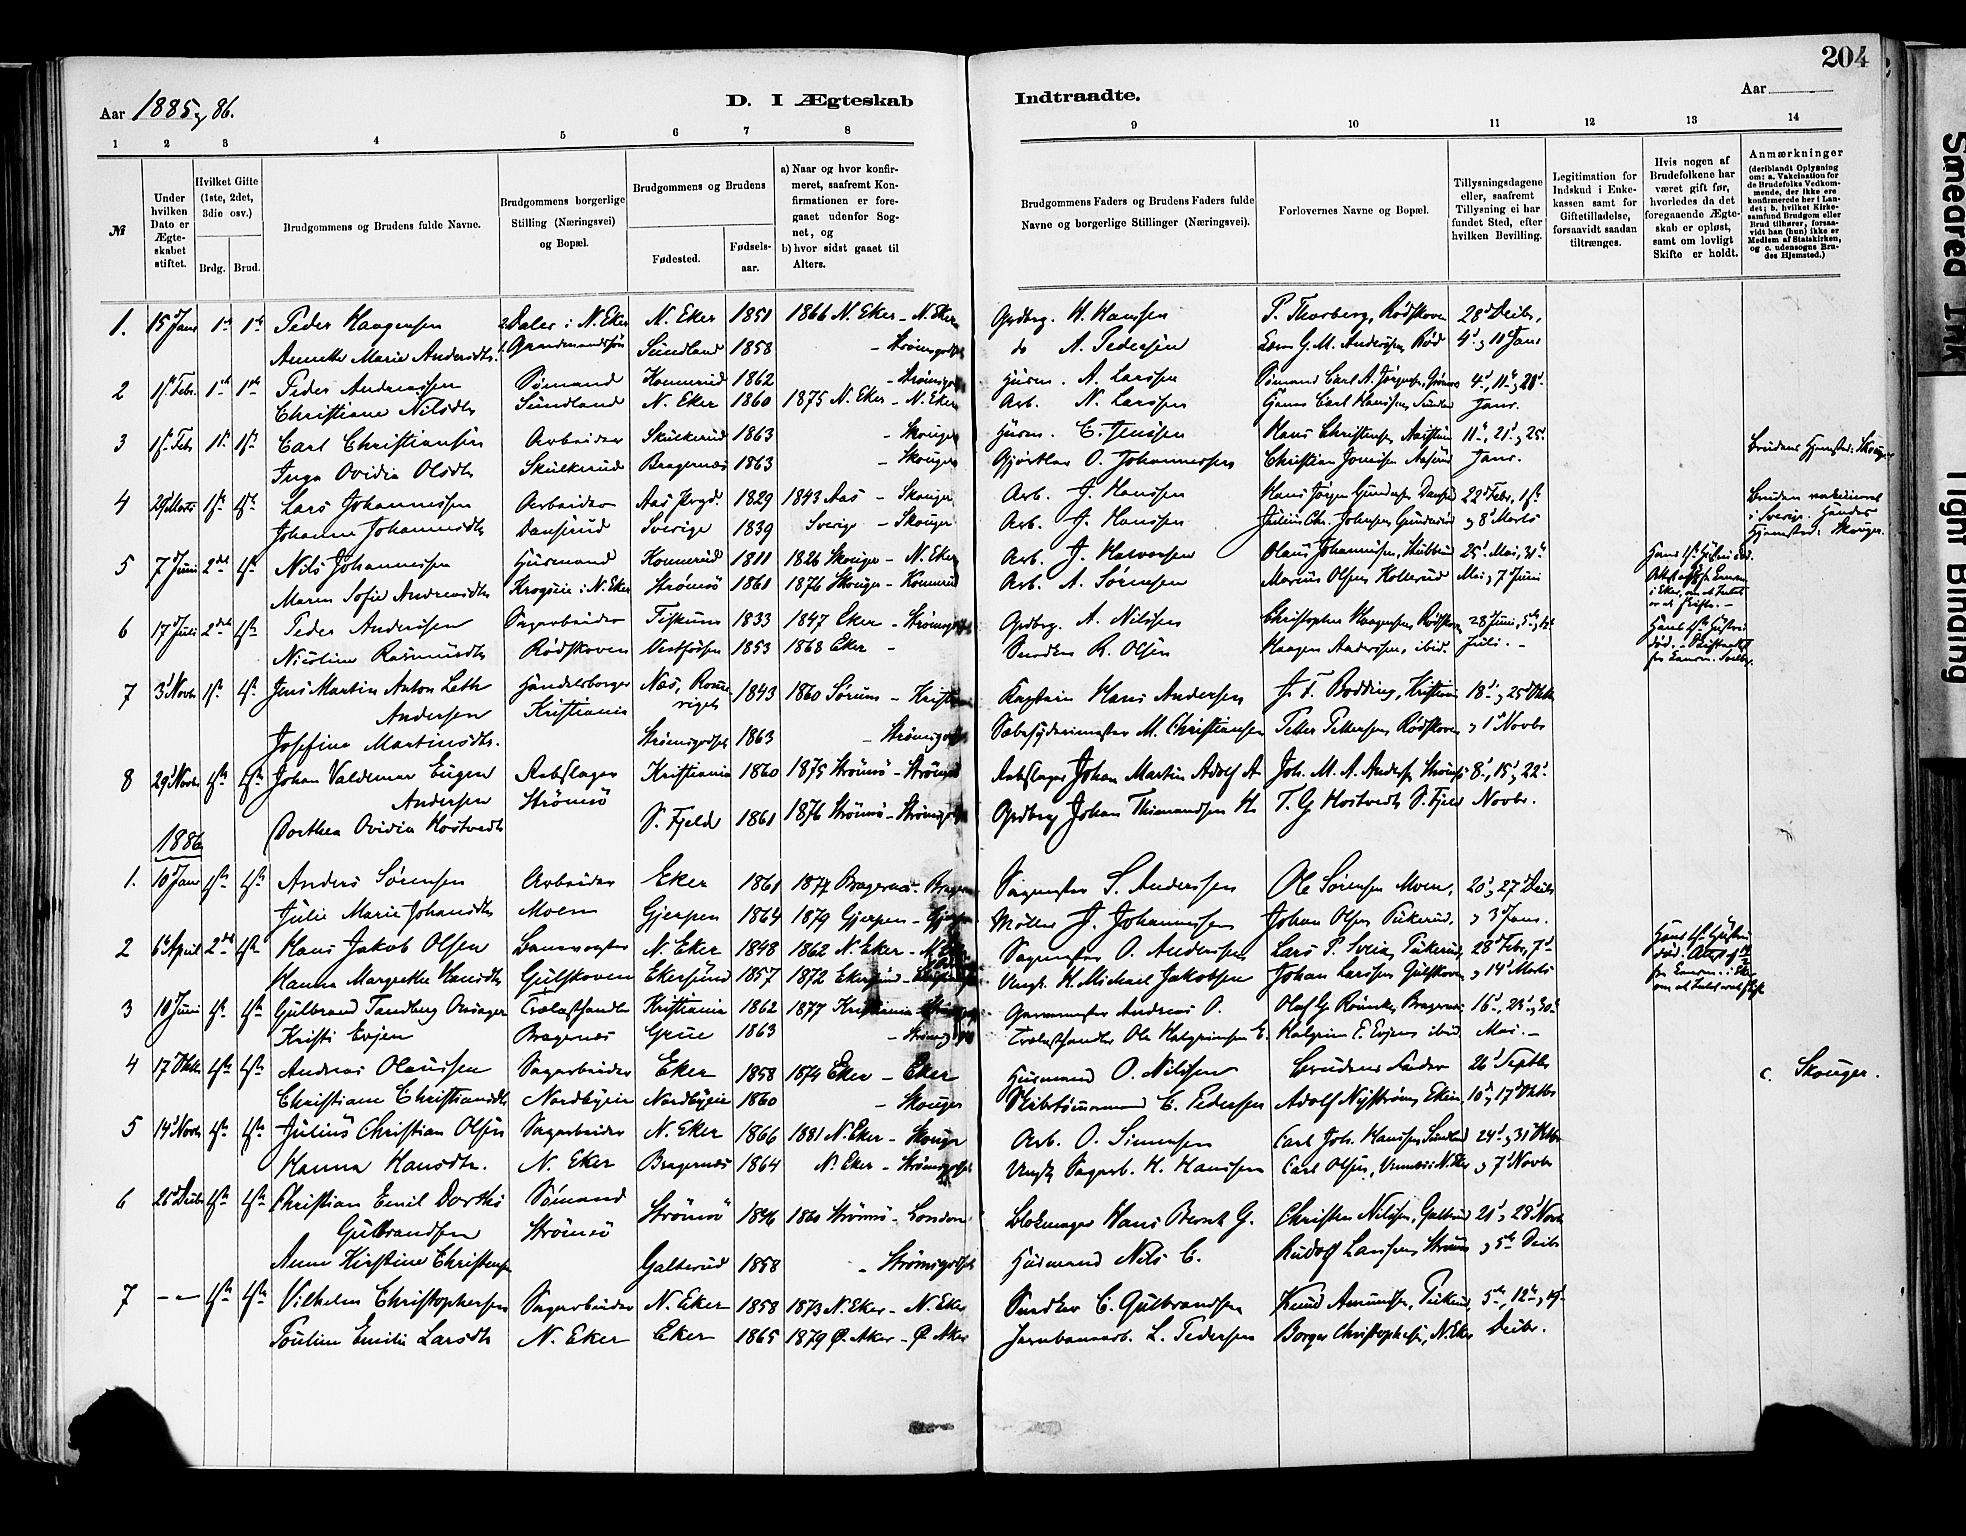 204
Aar 1885 & 86.
D. I Ægteskab
Indtraadte.
Aar
1 2 3 4 5 6 7 8 9 10 11 12 13 14
№
Under hvilken Dato er Ægteskabet stiftet.
Hvilket Gifte (1ste, 2det, 3die osv.)
Brdg. Brud.
Brudgommens og Brudens fulde Navne.
Brudgommens borgerlige Stilling (Næringsvei) og Bopæl.
Brudgommens og Brudens
Fødested.
Fødselsaar.
a) Naar og hvor konfirmeret, saafremt Konfirmationen er foregaaet udenfor Sognet, og
b) hvor sidst gaaet til Alters.
Brudgommens Faders og Brudens Faders fulde Navne og borgerlige Stillinger (Næringsvei).
Forlovernes Navne og Bopæl.
Tillysningsdagene eller, saafremt Tillysning ei har fundet Sted, efter hvilken Bevilling.
Legitimation for Indskud i Enkekassen samt for Giftetilladelse, forsaavidt saadan tiltrænges.
Hvis nogen af Brudefolkene har været gift før, hvorledes da det foregaaende Ægteskab er opløst, samt om lovligt Skifte er holdt.
Anmærkninger (deriblandt Oplysning om: a. Vakcination for de Brudefolks Vedkommende, der ikke ere konfirmerede her i Landet; b. hvilket Kirkesamfund Brudgom eller Brud tilhører, forsaavidt han (hun) ikke er Medlem af Statskirken, og c. udensogns Brudes Hjemsted.)
1. 15 Janr 1ste 1ste Peder Haagensen Dalen i N. Eker N. Eker 1851 1866 N. Eker - N. Eker Grdbrg. H. Hansen P. Thorberg, Rødskoven 28de Decbr,
Annette Marie Andersdtr. Sundland 1858 - Strømsgodset do A. Pedersen G. M. Andersen, Rød 4de & 11 Janr
2 1ste Febr. 1ste 1ste Peder Andreassen Sømand Konnerud 1862 - Strømsgodset Husm. A. Larssen Sømand Carl A. Jørgensen, 4de, 11te &
Christiane Nilsdtr Sundland N. Eker 1860 1875 N. Eker - N. Eker Arb. N. Larssen Carl Hanssen, Sundland Janr.
3 1ste Feb 1ste 1ste Carl Christiansen Arbeider Skulkerud 1863 - Skouger Husm. C. Jensen Hans Christensen 11te, 21de & 25de Brudens Hjemsted: Skouger
Inga Ovidia Olsdtr Skulkerud Bragernæs 1863 - Skouger Gjørtler O. Johannessen Christian Jonassen Janr.
4 29 Marts 1ste 1ste Lars Johannessen Arbeider Aas Prgd. 1829 1843 Aas - Skouger Arb. J. Hanssen Hans Jørgen Gundersen 22de Febr, 1ste Bruden vakcineret
Johanne Johannesdtr Dansrud Sverige 1839 Sverige - Skouger Arb. J. Hanssen Julius Chr. Johnsen & 8de Marts i Sverige. Hendes Hjemsted: Skouger.
5 7de Juni 2det 1ste Nils Johannessen Husmand Konnerud 1811 1826 Skouger - N. Eker Arb. J. Halvorsen Olaus Johannesen, Stubberud 25de Mai, 31te
Maren Sofie Andreasdtr i N. Eker Strømsø 1861 1876 Skouger - Konnerud Arb. A. Sørensen Marius Olsen Kollerud Mai & 7 Juni
6 17de Juli 2det 1ste Peder Andersen Sagarbeider Fiskum 1833 1847 Eker - Strømsgodset Grdbrg. A. Nilssen Christopher Haagensen, Rødskoven 28 Juni, 5te &
Nicoline Rasmusdtr Rødskoven Vestfossen 1853 1868 Eker - Snedker R. Olsen Haagen Andersen, ibid. Juli. -
7 3de Novbr 1ste 1ste Jens Martin Anton Leth Andersen Handelsborger Kristiania Næs, Romerriget 1843 1860 Sørum - Kristiania Kaptein Hans Andersen J. F. Bodding, Kristiania 18de & 25de Oktbr
Josefine Martinsdtr. Strømsgodset 1863 - Strømsgodset Sæbesyderimester M. Christiansen Petter Pettersen, Rødskoven & 1ste Novbr
8 29de Novbr 1ste 1ste Johan Valdemar Eugen Andersen Rebslager Strømsø Kristiania 1860 1875 Strømsø - Strømsø Rebslager Johan Martin Adolf A. Joh. M. A. Andersen Strømsø 8de, 15de & 22de
Dorthea Ovidia Hostvedt S. Fjeld 1861 1876 Strømsø - Strømsgodset Grdbrg. Johan Thimandsen H. T. G. Hostvedt S. Fjeld Novbr.
1886
1. 10de Janr 1ste 1ste Anders Sørensen Arbeider Eker 1861 1877 Bragernæs - Bragernæs Sagmester S. Anderssen Ole Sørensen Moen, 20de & 27de Decbr
Julie Marie Johansdtr Moen Gjerpen 1864 1879 Gjerpen - Gjerpen Møller J. Johannessen Johan Olsen, Pukerud, & 3de Janr.
2 6te April 2det 1ste Hans Jakob Olsen Banevogter N. Eker 1848 1862 N. Eker - N. Eker Sagmester O. Anderssen Lars P. Sveia, Pukerud, 28de Febr, 7de
Hanna Margrethe Hansdtr Gulskoven Ekersund 1857 1872 Ekersund - Ungk. H. Michael Jakobsen Johan Larssen Gulskoven & 14de Marts
3 10 Juni 1ste 1ste Gulbrand Tandberg Trælasthandler Kristiania 1862 1877 Kristiania - Andreas O. Olaf G. Bragernæs 16de, 23de & 30te
Kristi Evjen Bragernæs Grue 1863 - Strømsgodset Trælasthandler Ole Halgrimsen E. Halgrim E. Evjen ibid. Mai. -
4 17de Oktbr 1ste 1ste Andreas Olaussen Sagarbeider Eker 1858 1874 Eker - Eker Husmand O. Nilssen Brudens Fader 26de Septbr c. Skouger.
Christiane Christiansdtr Nordbyeie Nordbyeie 1860 - Skouger Skibstømmermand C. Pedersen Adolf Nystrøm, Eken, 10de & 17de Oktbr
5 14de Novbr 1ste 1ste Julius Christian Olsen Sagarbeider N. Eker 1866 1881 N. Eker - Skouger Arb. O. Simensen Carl Joh. Hanssen Sundland 24de & 31te Oktbr
Hanna Hansdtr. N. Eker Bragernæs 1864 N. Eker - Strømsgodset Ungk. Sagarb. H. Hanssen Carl Olsen, i N. Eker & 7de Novbr
6 26de Decbr 1ste 1ste Christian Emil Dorthé Gulbrandsen Sømand Strømsø Strømsø 1846 1860 Strømsø - London Blokmager Hans Bernt G. Christen Nilssen, Galterud 21de & 28de Novbr
Anne Kirstine Christensen Galterud 1858 - Strømsgodset Husmand Nils C. Rudolf Larssen, Strømsø & 5te Decbr
7 - " - 1ste 1ste Vilhelm Christophersen Sagarbeider N. Eker 1858 1873 N. Eker - N. Eker Snedker C. Gulbrandsen Knud Amundsen, Pukerud 5te, 12te, 19de
Pouline Emilie Larsdtr N. Eker Eker 1865 1879 Ø. Aker - Ø. Aker Jernbanearb. L. Pedersen Borger Christophersen, N. Eker Decbr.
Smeared Ink
Tight Binding